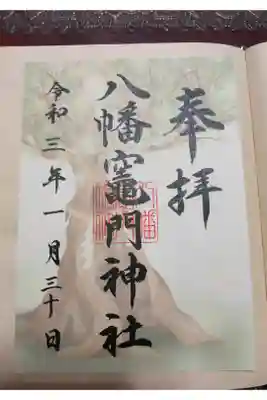 奉拝
八幡竈門神社
令和三年一月三十日